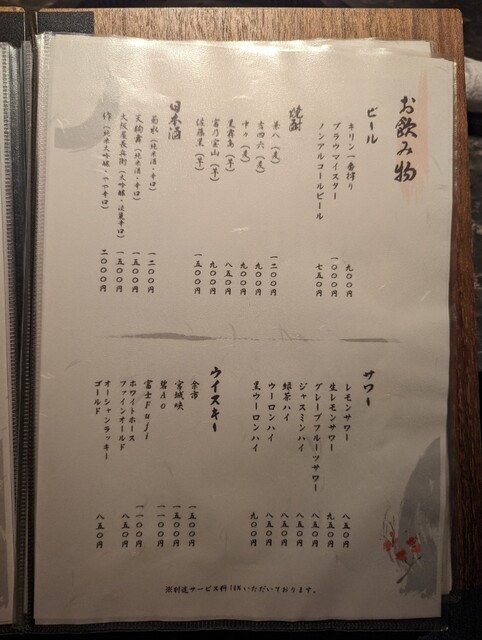 お飲み物
ビール
キリン一番搾り 九〇〇円
ブラウマイスター 一〇〇〇円
ノンアルコールビール 七五〇円
焼酎
兼八（麦） 一二〇〇円
吉四六（麦） 九〇〇円
中々（麦） 九〇〇円
黒霧島（芋） 八五〇円
富乃宝山（芋） 九〇〇円
佐藤黒（芋） 一五〇〇円
日本酒
菊水（純米酒・辛口） 一二〇〇円
天狗舞（純米酒・辛口） 一五〇〇円
大阪屋長兵衛（大吟醸・淡麗辛口） 一五〇〇円
作（純米大吟醸・やや辛口） 二〇〇〇円
サワー
レモンサワー 八五〇円
生レモンサワー 九五〇円
グレープフルーツサワー 八五〇円
ジャスミンハイ 八五〇円
緑茶ハイ 八五〇円
ウーロンハイ 八五〇円
黒ウーロンハイ 九〇〇円
ウイスキー
余市 一五〇〇円
宮城峡 一五〇〇円
碧Ao 一一〇〇円
富士Fuji 一一〇〇円
ホワイトホース
ファインオールド 八五〇円
オーシャンラッキー
ゴールド 八五〇円
※別途サービス料10%いただいております。